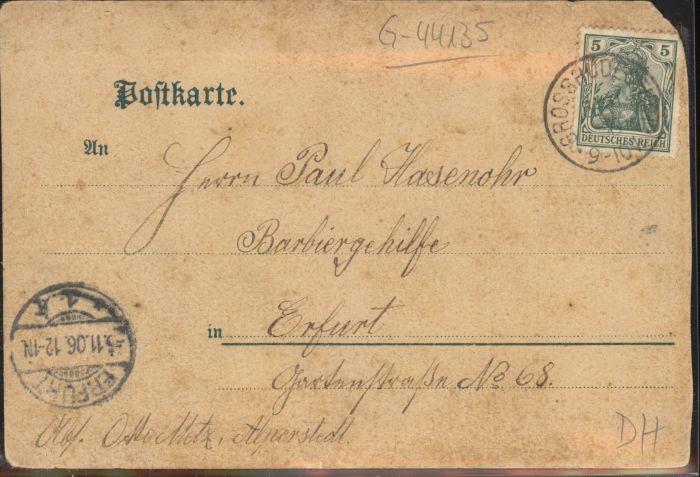 G-44135
5 5
DEUTSCHES REICH
GROSSRUDESTEDT
9-10
Postkarte.
An
Herrn Paul Hasenohr
Barbiergehilfe
in Erfurt
Gartenstraße No 68.
11.06. 12-1N.
ERFURT
1
Abs. Otto Metz, Alperstedt.
DH